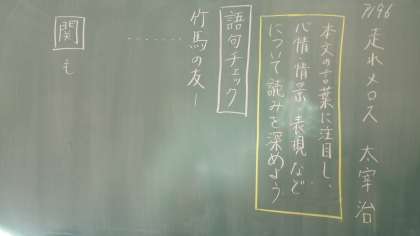 P196 走れメロス 太宰治
本文の言葉に注目し、
心情・情景・表現など
について読みを深めよう
語句チェック
竹馬の友ー
………
関も